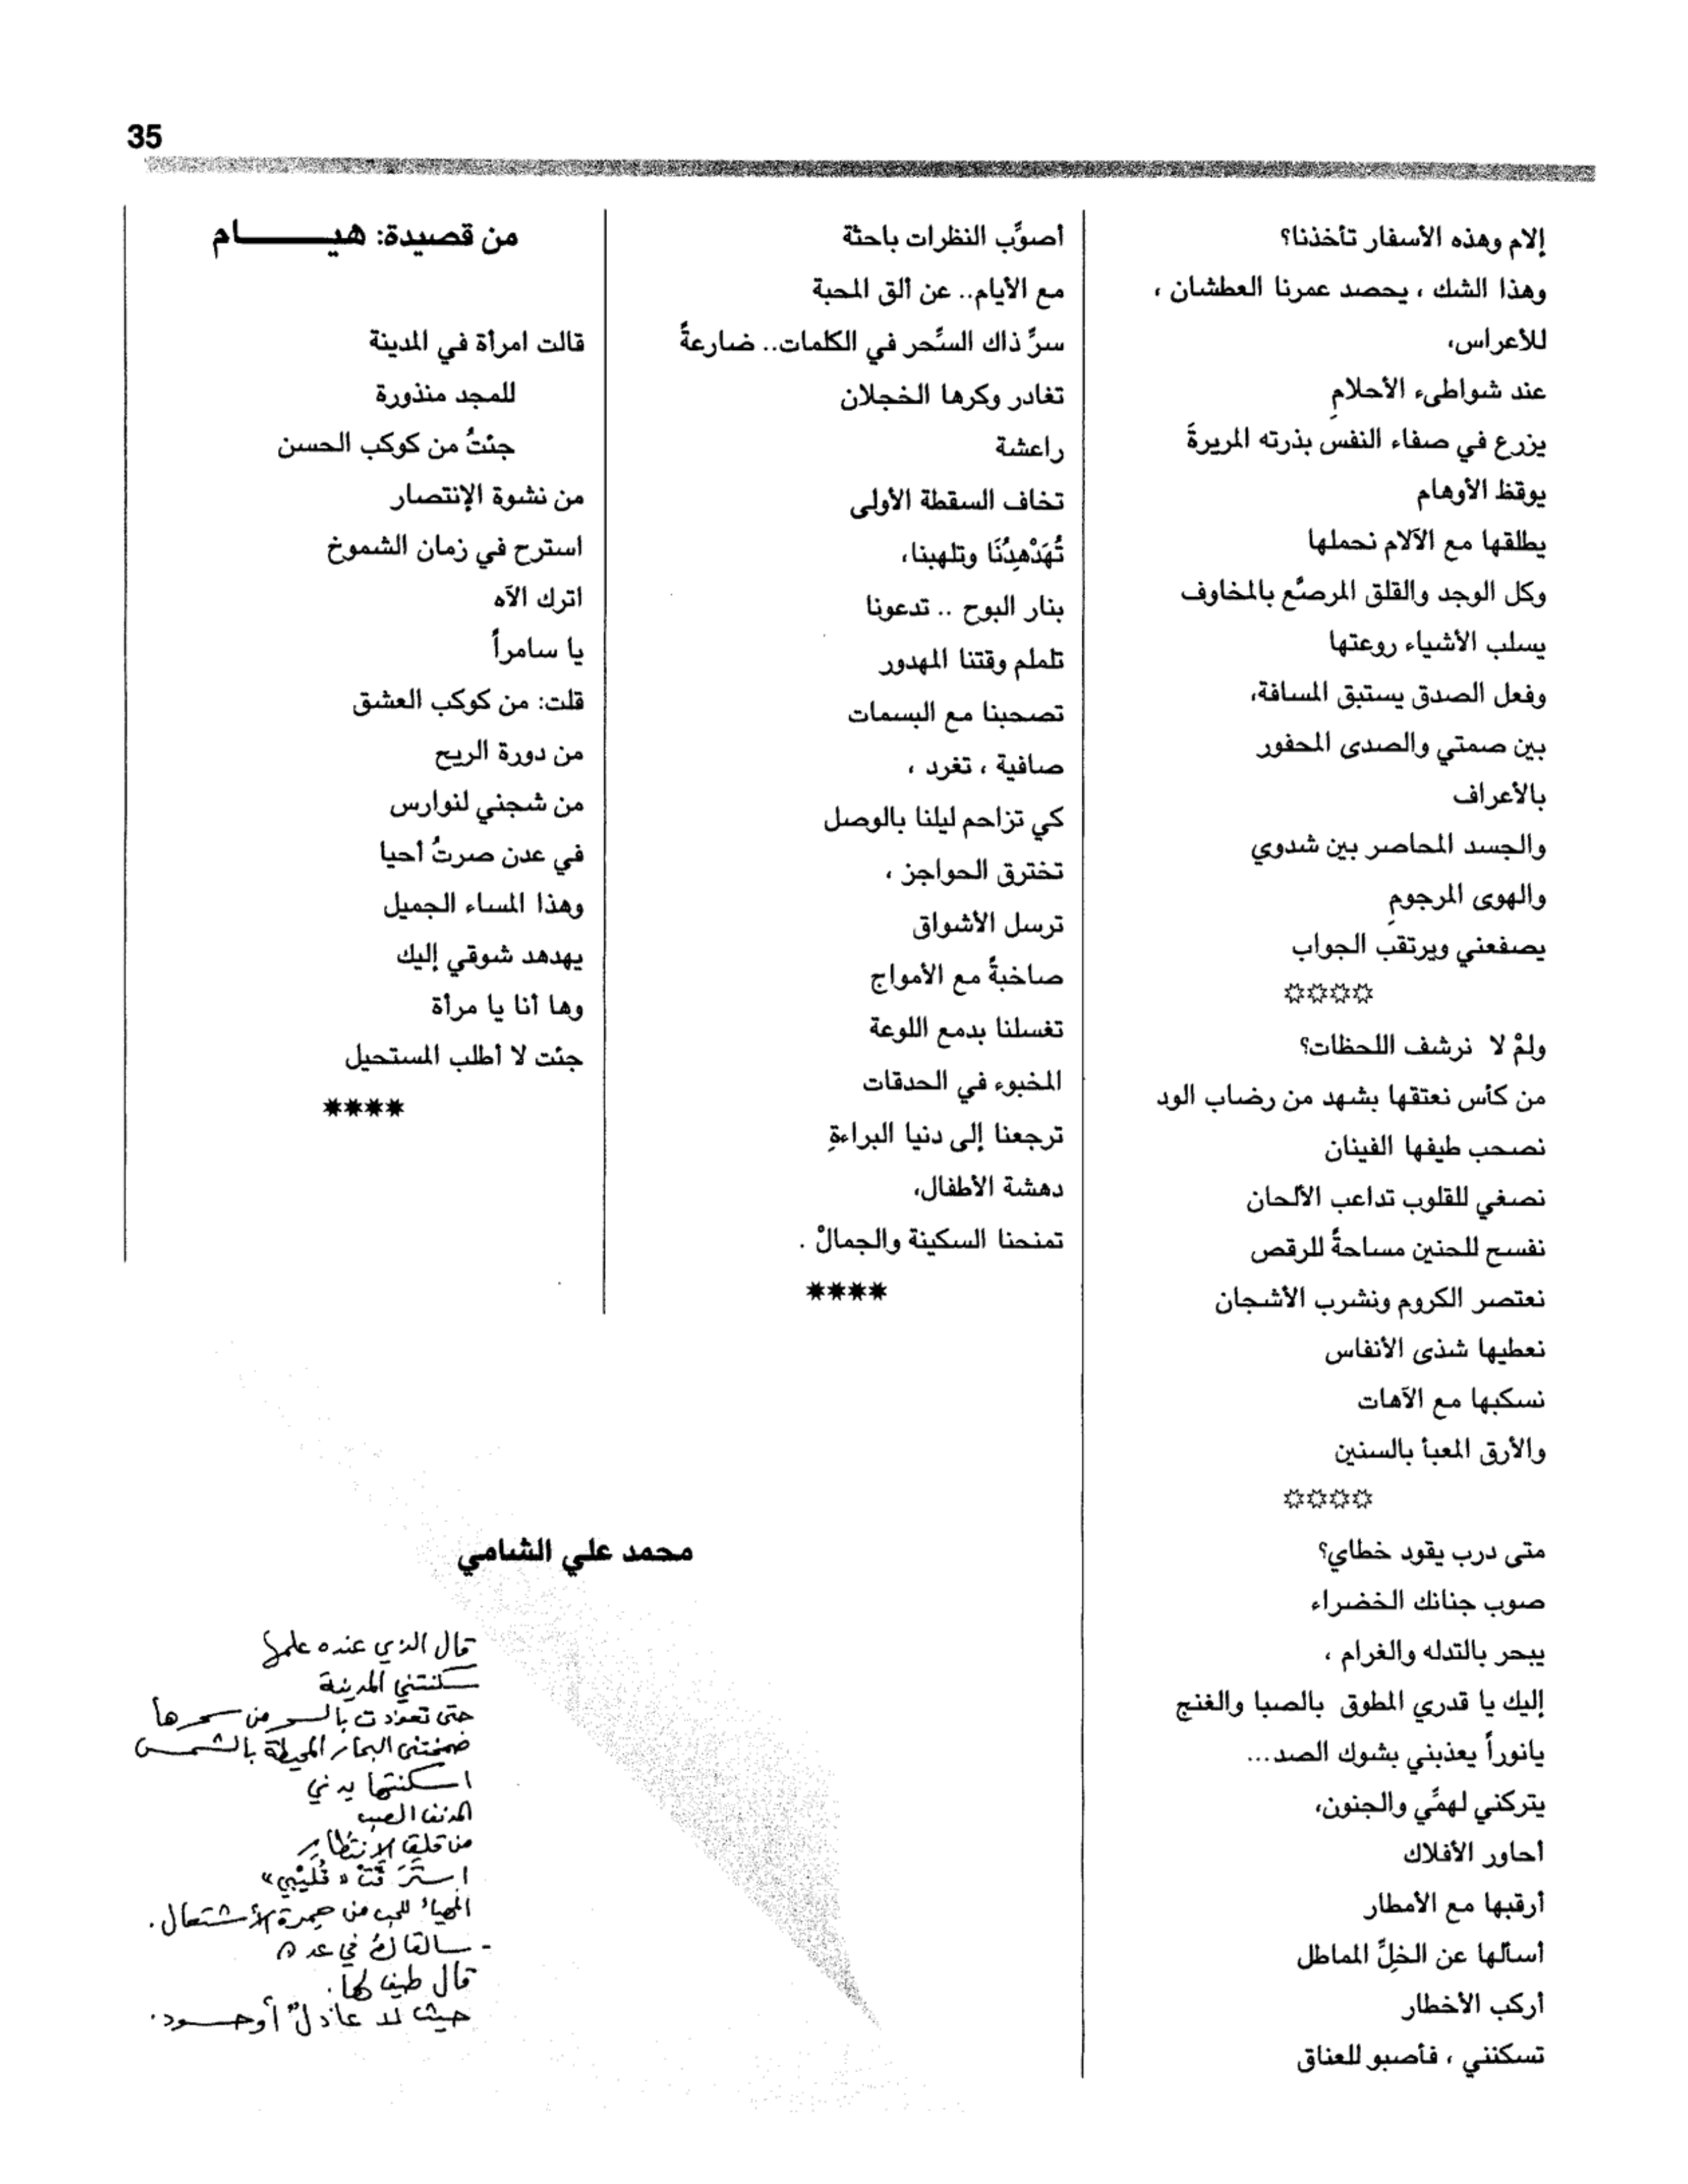 35
إلام وهذه الأسفار تأخذنا؟
وهذا الشك ، يحصد عمرنا العطشان ،
للأعراس،
عند شواطىء الأحلامِ
يزرع في صفاء النفس بذرته المريرةَ
يوقظ الأوهام
يطلقها مع الآلام نحملها
وكل الوجد والقلق المرصَّع بالمخاوف
يسلب الأشياء روعتها
وفعل الصدق يستبق المسافة،
بين صمتي والصدى المحفور
بالأعراف
والجسد المحاصر بين شدوي
والهوى المرجومِ
يصفعني ويرتقب الجواب
☼☼☼☼
ولمْ لا نرشف اللحظات؟
من كأس نعتقها بشهد من رضاب الود
نصحب طيفها الفينان
نصغي للقلوب تداعب الألحان
نفسح للحنين مساحةً للرقص
نعتصر الكروم ونشرب الأشجان
نعطيها شذى الأنفاس
نسكبها مع الآهات
والأرق المعبأ بالسنين
☼☼☼☼
متى درب يقود خطاي؟
صوب جنانك الخضراء
يبحر بالتدله والغرام ،
إليك يا قدري المطوق بالصبا والغنج
يانوراً يعذبني بشوك الصد...
يتركني لهمِّي والجنون،
أحاور الأفلاك
أرقبها مع الأمطار
أسألها عن الخِلِّ المماطل
أركب الأخطار
تسكنني ، فأصبو للعناق
أصوِّب النظرات باحثة
مع الأيام.. عن ألق المحبة
سرِّ ذاك السِّحر في الكلمات.. ضارعةً
تغادر وكرها الخجلان
راعشة
تخاف السقطة الأولى
تُهَدْهِدُنَا وتلهبنا،
بنار البوح .. تدعونا
تلملم وقتنا المهدور
تصحبنا مع البسمات
صافية ، تغرد ،
كي تزاحم ليلنا بالوصل
تخترق الحواجز ،
ترسل الأشواق
صاخبةً مع الأمواج
تغسلنا بدمع اللوعة
المخبوء في الحدقات
ترجعنا إلى دنيا البراءةِ
دهشة الأطفال،
تمنحنا السكينة والجمالْ .
****
من قصيدة: هيـــــام
قالت امرأة في المدينة
للمجد منذورة
جئتُ من كوكب الحسن
من نشوة الإنتصار
استرح في زمان الشموخ
اترك الآه
يا سامراً
قلت: من كوكب العشق
من دورة الريح
من شجني لنوارس
في عدن صرتُ أحيا
وهذا المساء الجميل
يهدهد شوقي إليك
وها أنا يا مرأة
جئت لا أطلب المستحيل
****
محمد علي الشامي
قال الذي عنده علمها
سكنتني المدينة
حتى تعوّدت بالسحر من سحرها
ضمختني البحار المحيطة بالشمس
اسكنتها بدني
المدنف الصب
من قلق الانتظار
استَرَقَتْ «قُلَيْبي»
المهيأ للحب من جمرة الأشتعال.
- في عدن
قال طيف لها.
حيث لا عاذلٌ أو حسود.